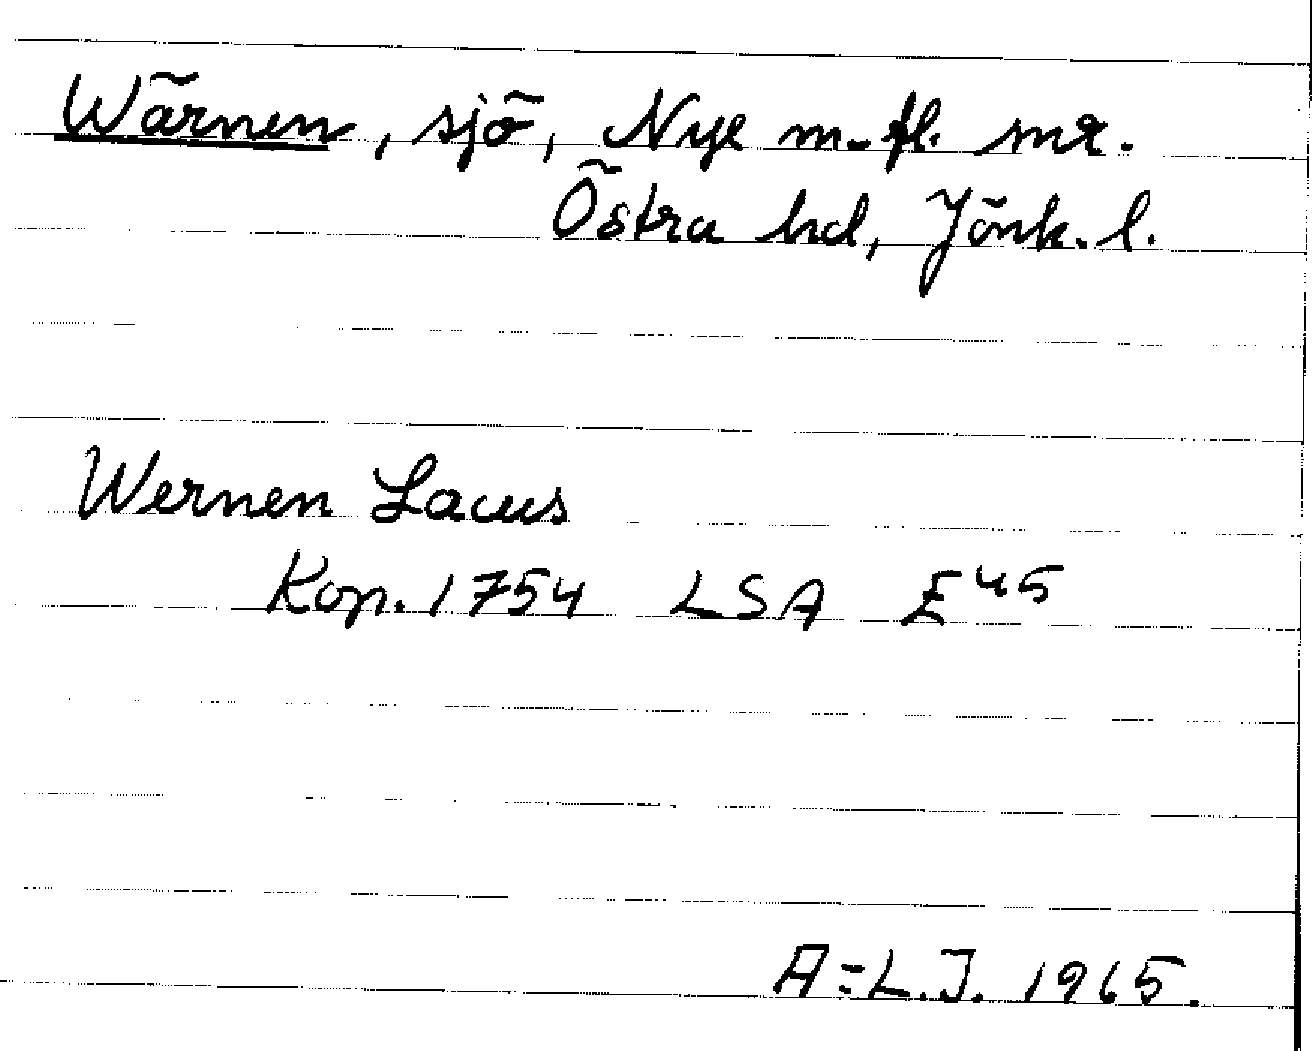 Wärnen, sjö, Nye m. fl. snr.
Östra hd, Jönk. l.
Wernen Lacus
Kop. 1754 LSA E 45
A-L.J. 1965.